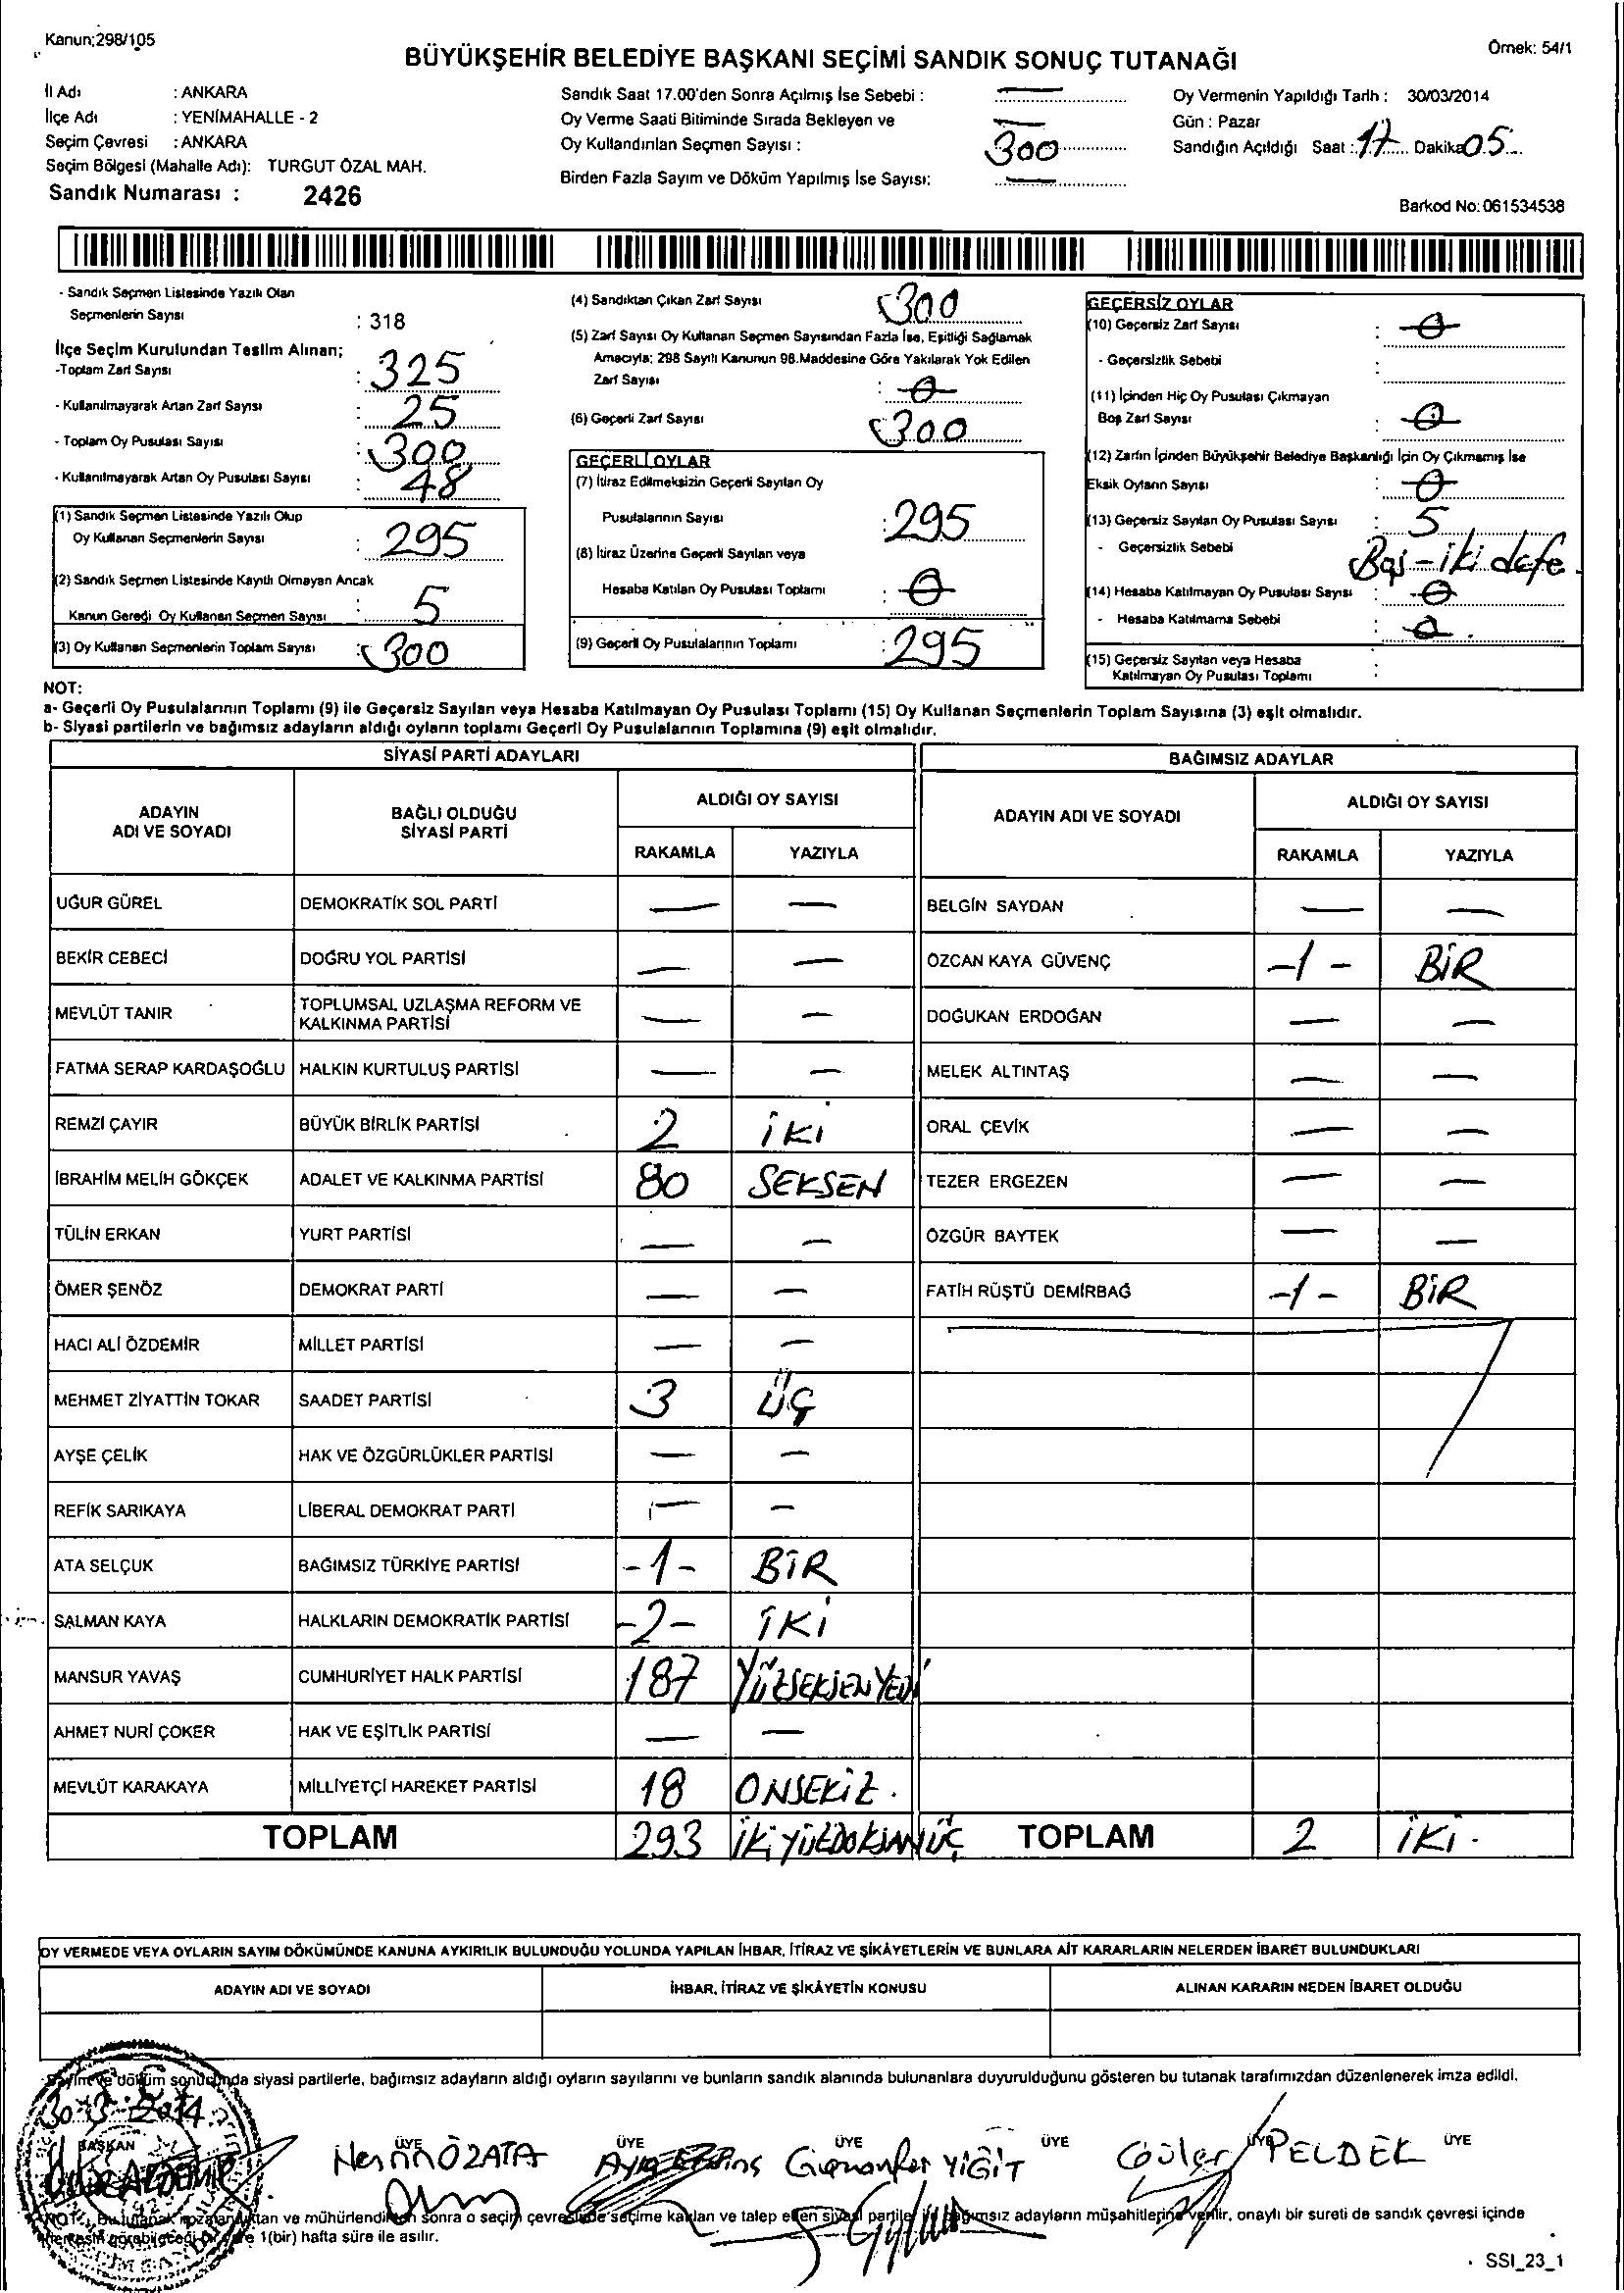 Kanun;298/105
BÜYÜKŞEHİR BELEDİYE BAŞKANI SEÇİMİ SANDIK SONUÇ TUTANAĞI
Örnek: 54/1
İl Adı : ANKARA
İlçe Adı : YENİMAHALLE - 2
Seçim Çevresi : ANKARA
Seçim Bölgesi (Mahalle Adı): TURGUT ÖZAL MAH.
Sandık Numarası : 2426
Sandık Saat 17.00'den Sonra Açılmış İse Sebebi : —
Oy Verme Saati Bitiminde Sırada Bekleyen ve —
Oy Kullandırılan Seçmen Sayısı : 300
Birden Fazla Sayım ve Döküm Yapılmış İse Sayısı: —
Oy Vermenin Yapıldığı Tarih : 30/03/2014
Gün : Pazar
Sandığın Açıldığı Saat : 17 Dakika 05
Barkod No: 061534538
- Sandık Seçmen Listesinde Yazılı Olan
Seçmenlerin Sayısı : 318
İlçe Seçim Kurulundan Teslim Alınan;
-Toplam Zarf Sayısı : 325
- Kullanılmayarak Artan Zarf Sayısı : 25
- Toplam Oy Pusulası Sayısı : 300
- Kullanılmayarak Artan Oy Pusulası Sayısı : 48
(1) Sandık Seçmen Listesinde Yazılı Olup
Oy Kullanan Seçmenlerin Sayısı : 295
(2) Sandık Seçmen Listesinde Kayıtlı Olmayan Ancak
Kanun Gereği Oy Kullanan Seçmen Sayısı : 5
(3) Oy Kullanan Seçmenlerin Toplam Sayısı : 300
(4) Sandıktan Çıkan Zarf Sayısı 300
(5) Zarf Sayısı Oy Kullanan Seçmen Sayısından Fazla İse, Eşitliği Sağlamak
Amacıyla; 298 Sayılı Kanunun 98.Maddesine Göre Yakılarak Yok Edilen
Zarf Sayısı : 0
(6) Geçerli Zarf Sayısı 300
GEÇERLİ OYLAR
(7) İtiraz Edilmeksizin Geçerli Sayılan Oy
Pusulalarının Sayısı : 295
(8) İtiraz Üzerine Geçerli Sayılan veya
Hesaba Katılan Oy Pusulası Toplamı : 0
(9) Geçerli Oy Pusulalarının Toplamı : 295
GEÇERSİZ OYLAR
(10) Geçersiz Zarf Sayısı : 0
- Geçersizlik Sebebi :
(11) İçinden Hiç Oy Pusulası Çıkmayan
Boş Zarf Sayısı : 0
(12) Zarfın İçinden Büyükşehir Belediye Başkanlığı İçin Oy Çıkmamış İse
Eksik Oyların Sayısı : 0
(13) Geçersiz Sayılan Oy Pusulası Sayısı : 5
- Geçersizlik Sebebi Boş - iki defe
(14) Hesaba Katılmayan Oy Pusulası Sayısı : 0
- Hesaba Katılmama Sebebi : 0
(15) Geçersiz Sayılan veya Hesaba
Katılmayan Oy Pusulası Toplamı :
NOT:
a- Geçerli Oy Pusulalarının Toplamı (9) ile Geçersiz Sayılan veya Hesaba Katılmayan Oy Pusulası Toplamı (15) Oy Kullanan Seçmenlerin Toplam Sayısına (3) eşit olmalıdır.
b- Siyasi partilerin ve bağımsız adayların aldığı oyların toplamı Geçerli Oy Pusulalarının Toplamına (9) eşit olmalıdır.
SİYASİ PARTİ ADAYLARI
BAĞIMSIZ ADAYLAR
ADAYIN ADI VE SOYADI
BAĞLI OLDUĞU SİYASİ PARTİ
ALDIĞI OY SAYISI
RAKAMLA YAZIYLA
ADAYIN ADI VE SOYADI
ALDIĞI OY SAYISI
RAKAMLA YAZIYLA
UĞUR GÜREL DEMOKRATİK SOL PARTİ — — BELGİN SAYDAN — —
BEKİR CEBECİ DOĞRU YOL PARTİSİ — — ÖZCAN KAYA GÜVENÇ -1- BİR
MEVLÜT TANIR TOPLUMSAL UZLAŞMA REFORM VE KALKINMA PARTİSİ — — DOĞUKAN ERDOĞAN — —
FATMA SERAP KARDAŞOĞLU HALKIN KURTULUŞ PARTİSİ — — MELEK ALTINTAŞ — —
REMZİ ÇAYIR BÜYÜK BİRLİK PARTİSİ 2 iKi ORAL ÇEVİK — —
İBRAHİM MELİH GÖKÇEK ADALET VE KALKINMA PARTİSİ 80 SEKSEN TEZER ERGEZEN — —
TÜLİN ERKAN YURT PARTİSİ — — ÖZGÜR BAYTEK — —
ÖMER ŞENÖZ DEMOKRAT PARTİ — — FATİH RÜŞTÜ DEMİRBAĞ -1- BİR
HACI ALİ ÖZDEMİR MİLLET PARTİSİ — —
MEHMET ZİYATTİN TOKAR SAADET PARTİSİ 3 ÜÇ
AYŞE ÇELİK HAK VE ÖZGÜRLÜKLER PARTİSİ — —
REFİK SARIKAYA LİBERAL DEMOKRAT PARTİ — —
ATA SELÇUK BAĞIMSIZ TÜRKİYE PARTİSİ -1- BİR
SALMAN KAYA HALKLARIN DEMOKRATİK PARTİSİ -2- İKİ
MANSUR YAVAŞ CUMHURİYET HALK PARTİSİ 187 YÜZSEKSENYEDİ
AHMET NURİ ÇOKER HAK VE EŞİTLİK PARTİSİ — —
MEVLÜT KARAKAYA MİLLİYETÇİ HAREKET PARTİSİ 18 ONSEKİZ.
TOPLAM 293 İKİYÜZDOKSANÜÇ TOPLAM 2 İKİ.
OY VERMEDE VEYA OYLARIN SAYIM DÖKÜMÜNDE KANUNA AYKIRILIK BULUNDUĞU YOLUNDA YAPILAN İHBAR, İTİRAZ VE ŞİKÂYETLERİN VE BUNLARA AİT KARARLARIN NELERDEN İBARET BULUNDUKLARI
ADAYIN ADI VE SOYADI İHBAR, İTİRAZ VE ŞİKÂYETİN KONUSU ALINAN KARARIN NEDEN İBARET OLDUĞU
Sayım ve döküm sonucunda siyasi partilerle, bağımsız adayların aldığı oyların sayılarını ve bunların sandık alanında bulunanlara duyurulduğunu gösteren bu tutanak tarafımızdan düzenlenerek imza edildi.
30-3-2014
BAŞKAN ÜYE ÜYE ÜYE ÜYE ÜYE ÜYE
ÖZATA YİĞİT Güler PELDEK
NOT: Bu tutanak imzalandıktan ve mühürlendikten sonra o seçim çevresinde seçime katılan ve talep eden siyasi partiler ve bağımsız adayların müşahitlerine verilir, onaylı bir sureti de sandık çevresi içinde
herkesin görebileceği bir yere 1(bir) hafta süre ile asılır.
SSI_23_1